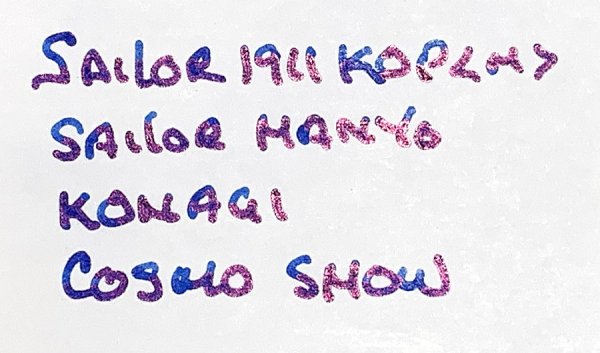 SAILOR 1911 KOP<M>
SAILOR MANYO
KONAGI
COSMO SNOW